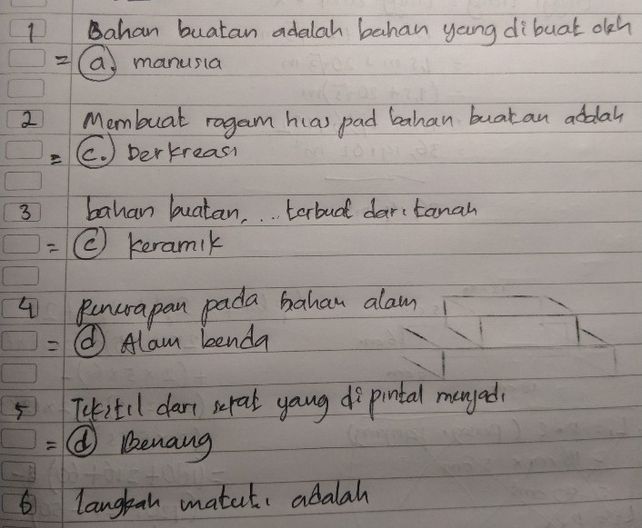 1 Bahan buatan adalah bahan yang dibuat oleh
= a. manusia
2 Membuat ragam hias pad bahan buatan adalah
= c. berkreasi
3 bahan buatan, ... terbuat dari tanah
= c keramik
4 penerapan pada bahan alam
= d Alam benda
5 Tekstil dari serat yang dipintal menjadi
= d Benang
6 langkah adalah